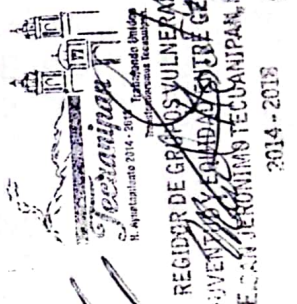 Tecuanipan
H. Ayuntamiento 2014 - 2018 Trabajando Unidos
Tecuanipan
REGIDOR DE GRUPOS VULNERA
JUVENTUD Y EQUIDAD ENTRE GE
SAN JERONIMO TECUANIPAN,
2014 - 2018